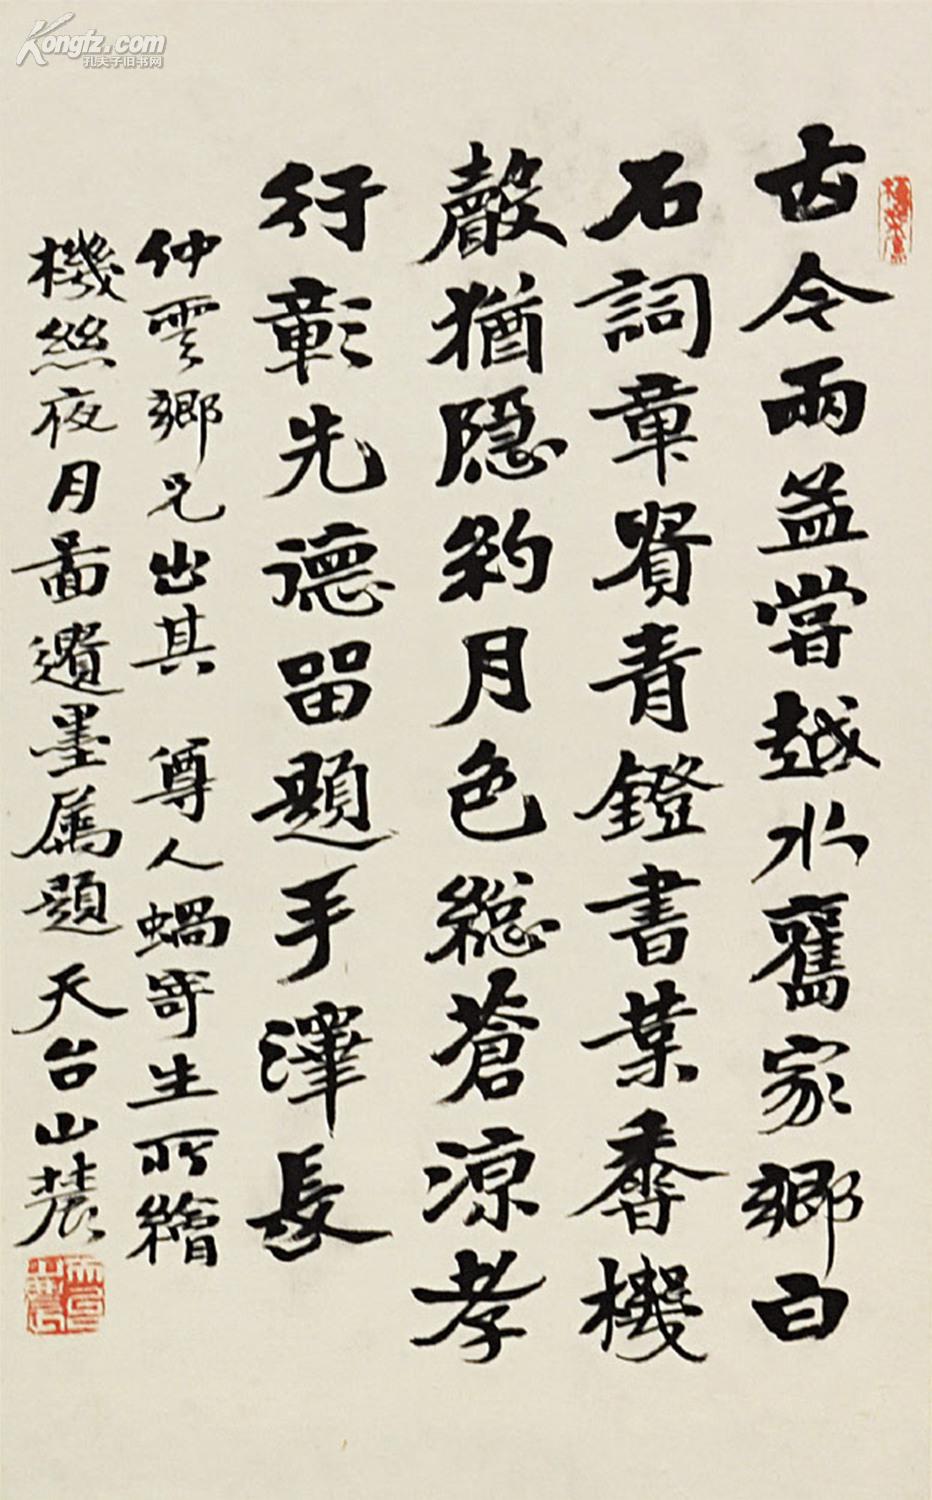 Kongfz.com
孔夫子旧书网
古今兩益嘗越水舊家鄉白
石詞章賢青鐙書葉香機
聲猶隱約月色總蒼涼孝
行彰先德留題手澤長
仲雲鄉兄出其 尊人蝸寄生所繪
機絲夜月圖遺墨屬題 天台山農